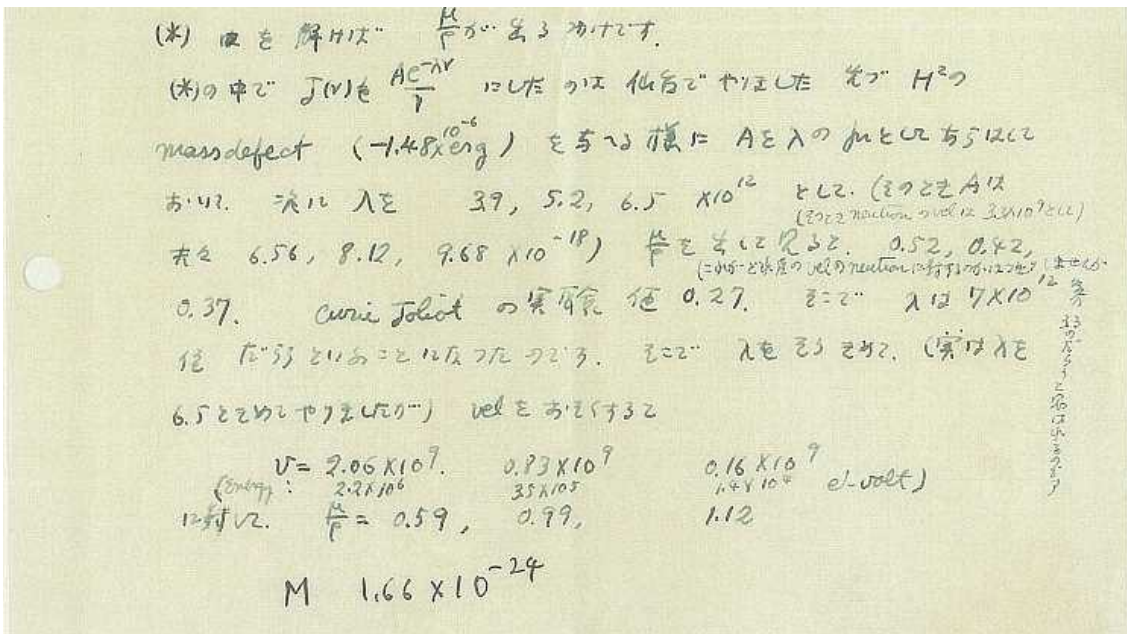 (*) を解けば μ/ρ が出るわけです.
(*)の中で J(r)を Ae^-λr/r にしたのは仙台でやりました 先づ H²の
mass defect (-1.48×10^-6 erg) を与へる様に Aをλの fn としてあらはして
おいて. 次に λを 3.9, 5.2, 6.5 ×10^12 として. (そのとき Aは
(そのとき neutron の vel は 3.×10^9 として)
夫々 6.56, 8.12, 9.68 ×10^-18) μ/ρ を出して見ると. 0.52, 0.42,
(これがどの程度の vel の neutron に対するのか ませんが
0.37. Curie Joliot の実験値 0.27. そこで λは 7×10^12
位だらうといふことになつたのです. そこで λをそうきめて. (実はλを
6.5ときめてやりましたが) velをおそくすると
v= 2.06×10^9. 0.83×10^9 0.16×10^9
(Energy: 2.2×10^6 3.5×10^5 1.4×10^4 el-volt)
に対して. μ/ρ = 0.59, 0.99, 1.12
M 1.66×10^-24